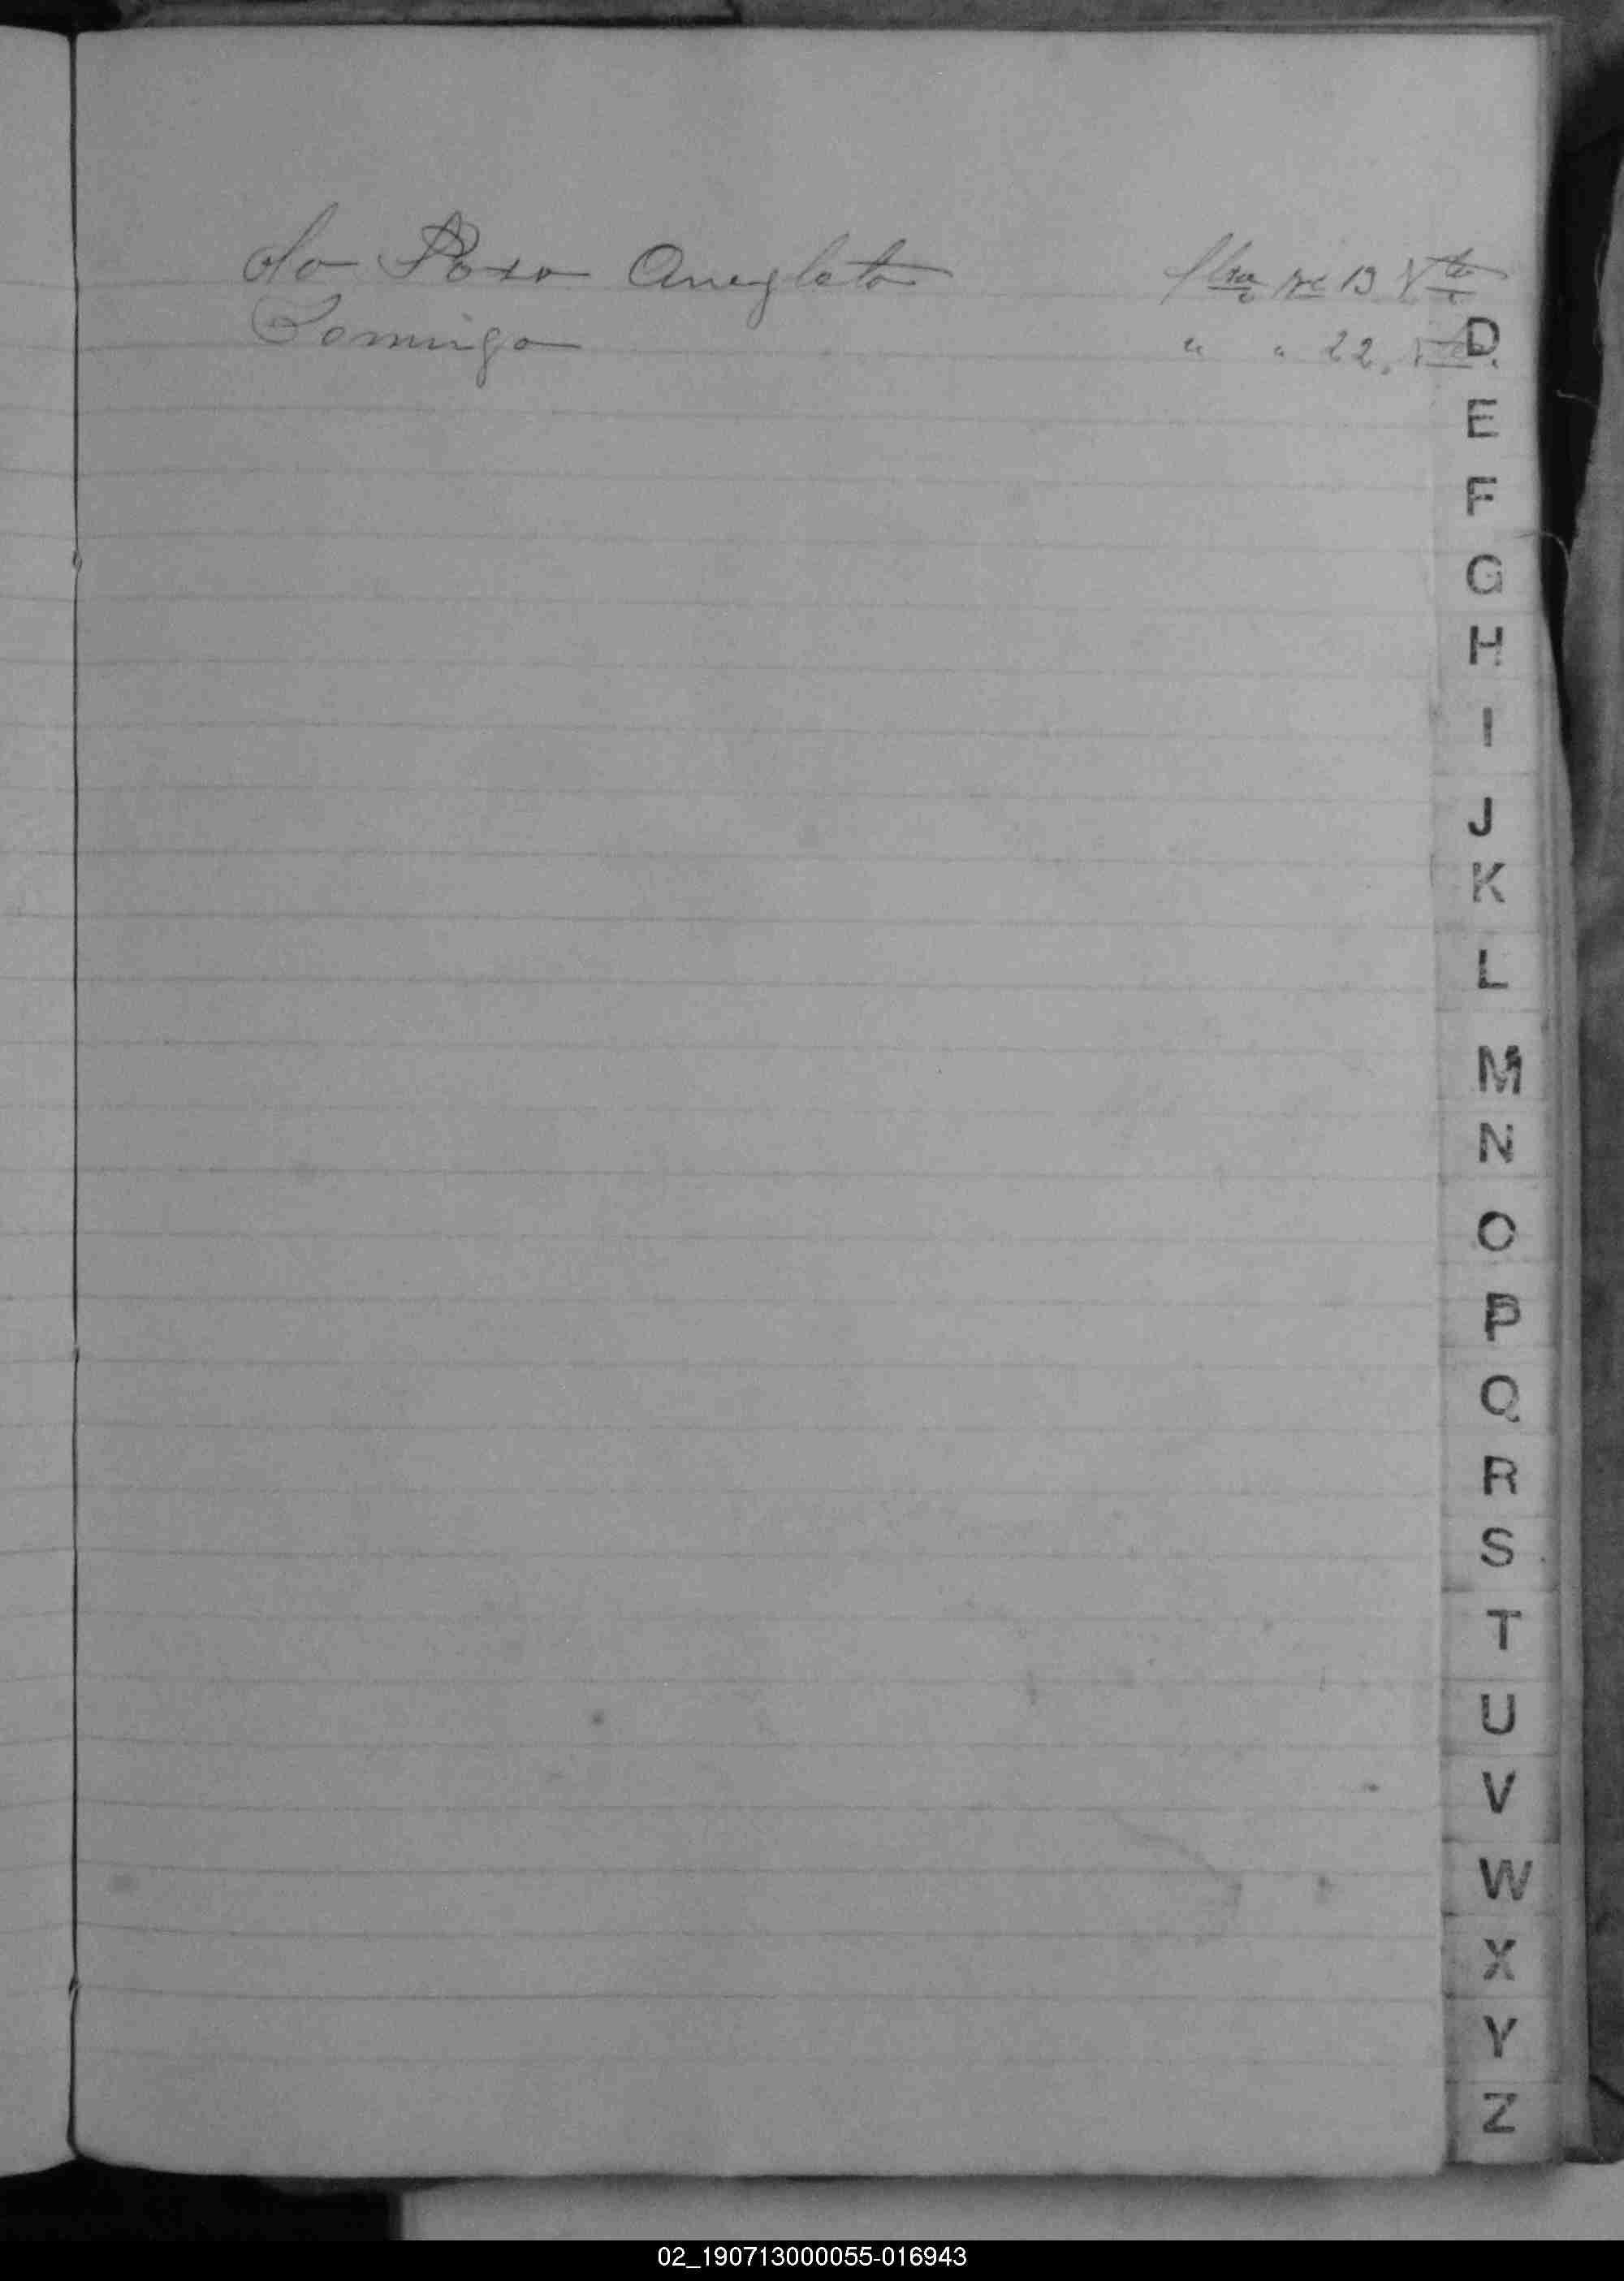 do Poso Anegleto 13
Domingo " " 22.
D
E
F
G
H
I
J
K
L
M
N
O
P
Q
R
S
T
U
V
W
X
Y
Z
02_190713000055-016943